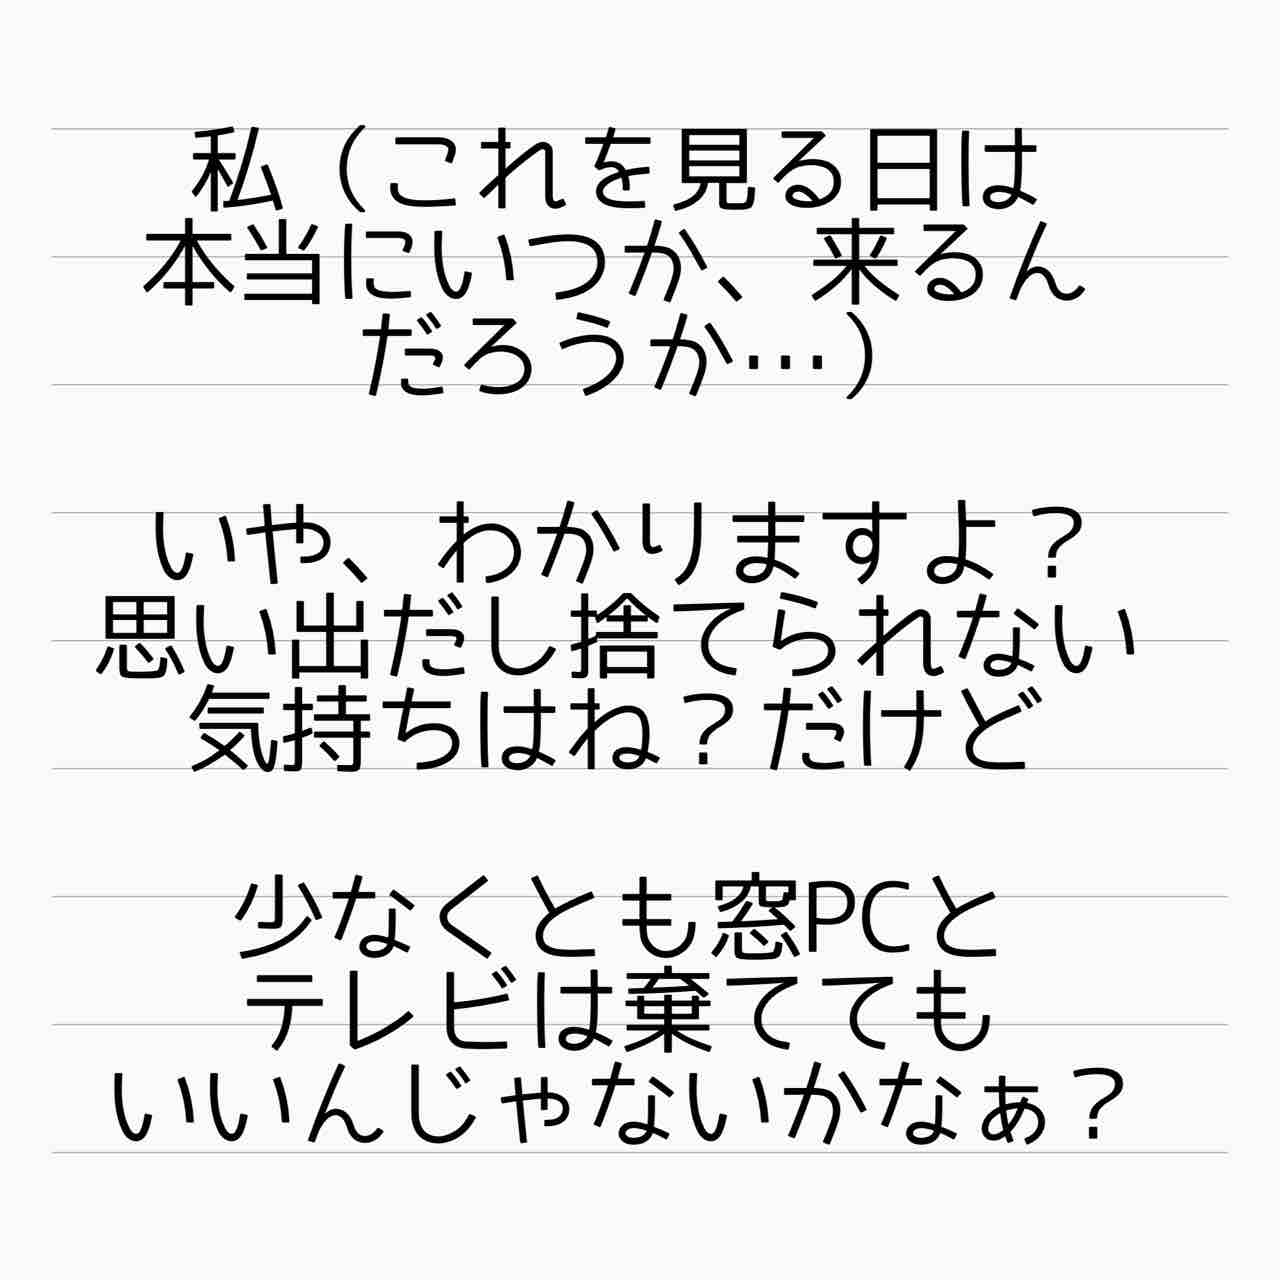 私（これを見る日は
本当にいつか、来るん
だろうか…）
いや、わかりますよ？
思い出だし捨てられない
気持ちはね？だけど
少なくとも窓PCと
テレビは棄てても
いいんじゃないかなぁ？